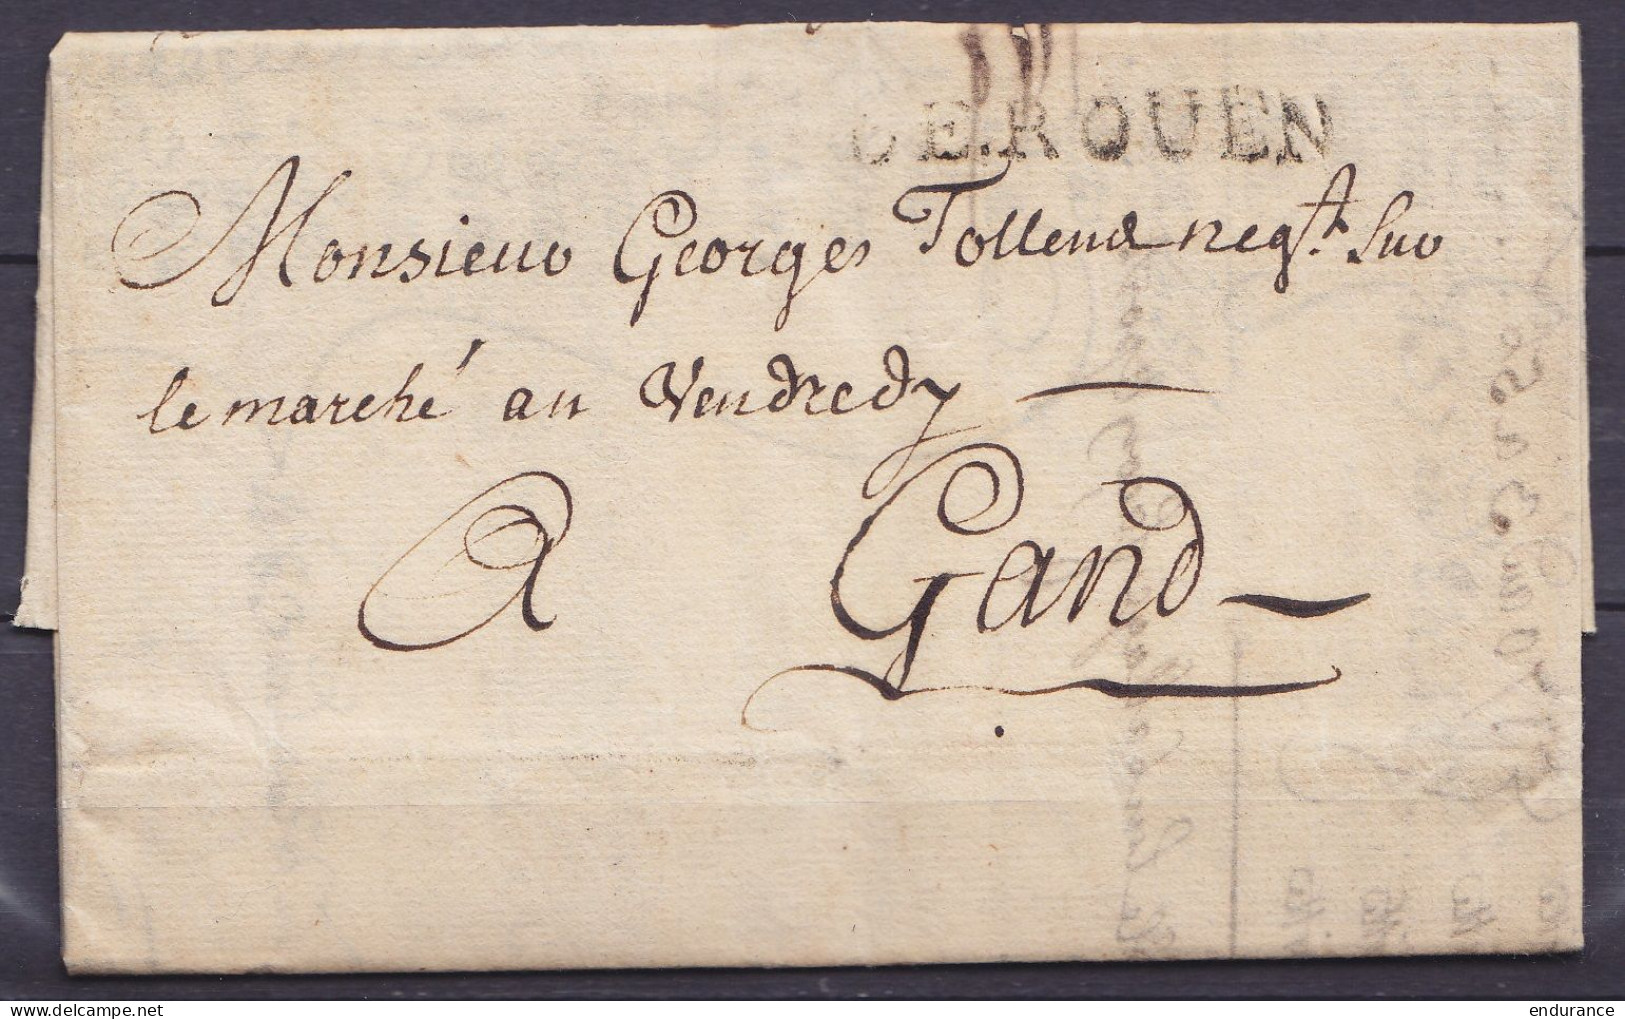 DE.ROUEN
Monsieur Georges Tollens neg.t Sur
le marché au Vendredy
A Gand
endurance